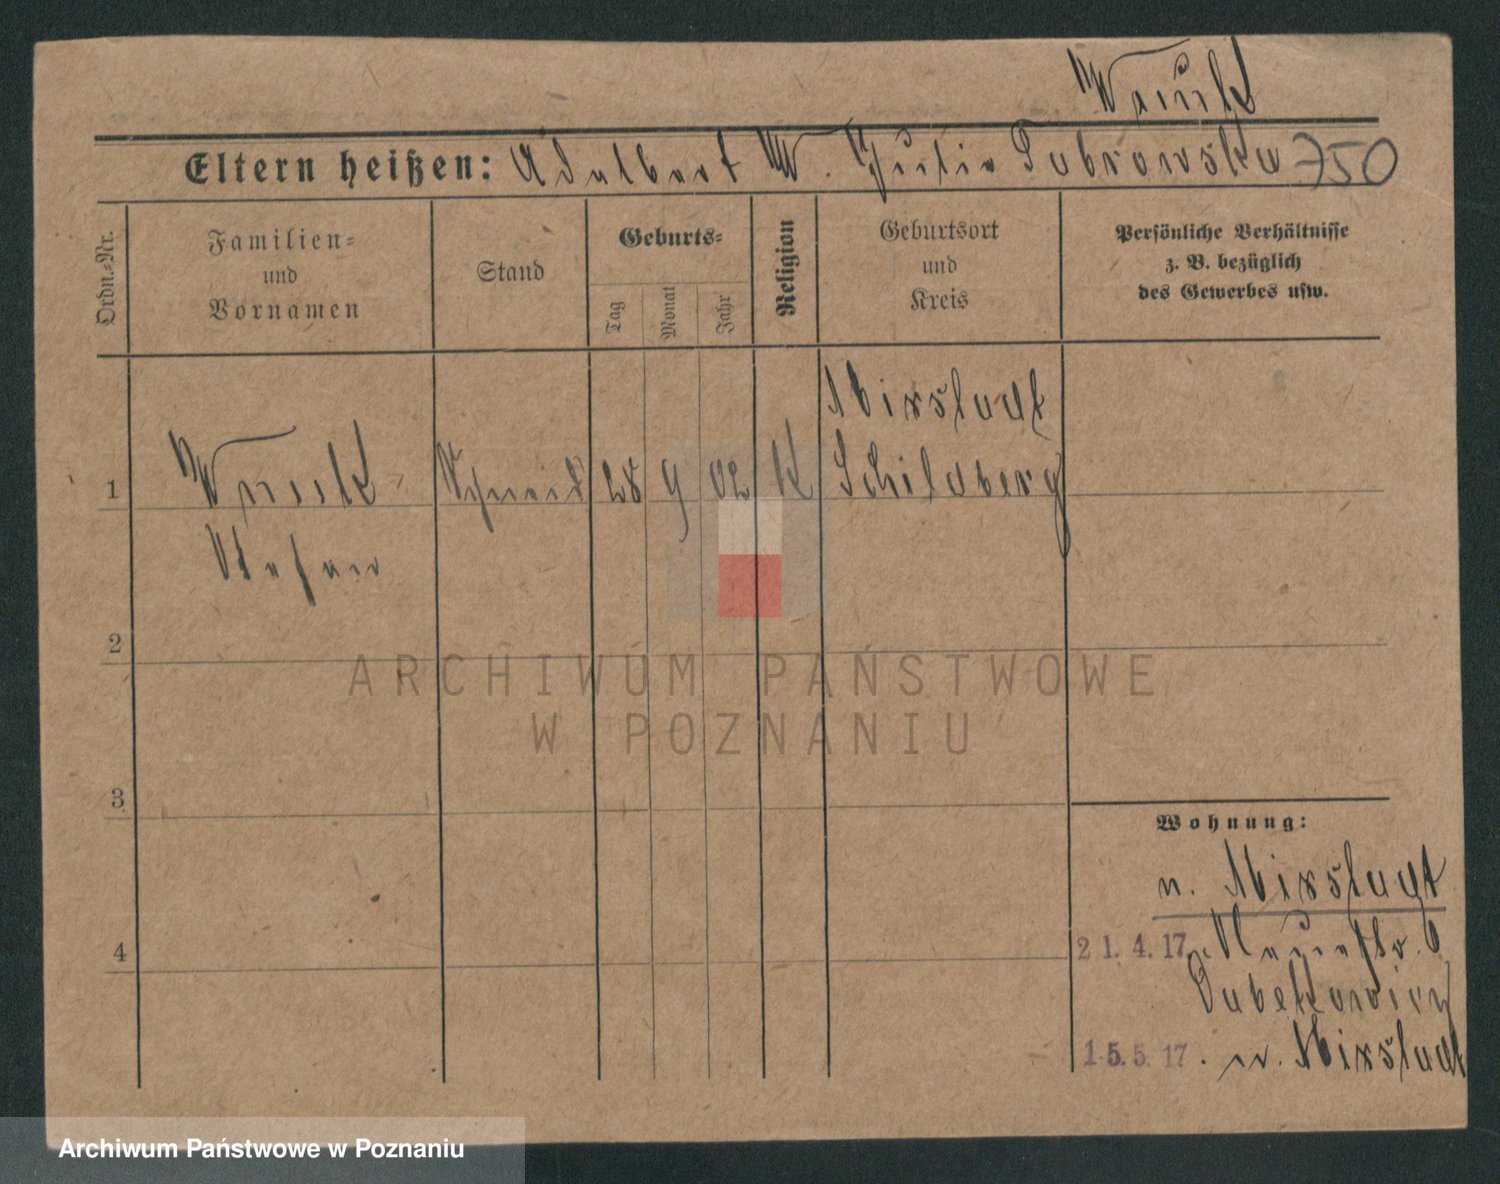 Eltern heißen: Adalbert W. Julie Dobrowska 750
Ordn.-Nr.
Familien-
und
Vornamen
Stand
Geburts-
Tag
Monat
Jahr
Religion
Geburtsort
und
Kreis
Persönliche Verhältnisse
z. B. bezüglich
des Gewerbes usw.
Mixstadt
1 28 9 02 K Schildberg
Stefan
2
ARCHIWUM PAŃSTWOWE
W POZNANIU
3
Wohnung:
n. Mixstadt
4
21. 4. 17. 6
15. 5. 17. n. Mixstadt
Archiwum Państwowe w Poznaniu